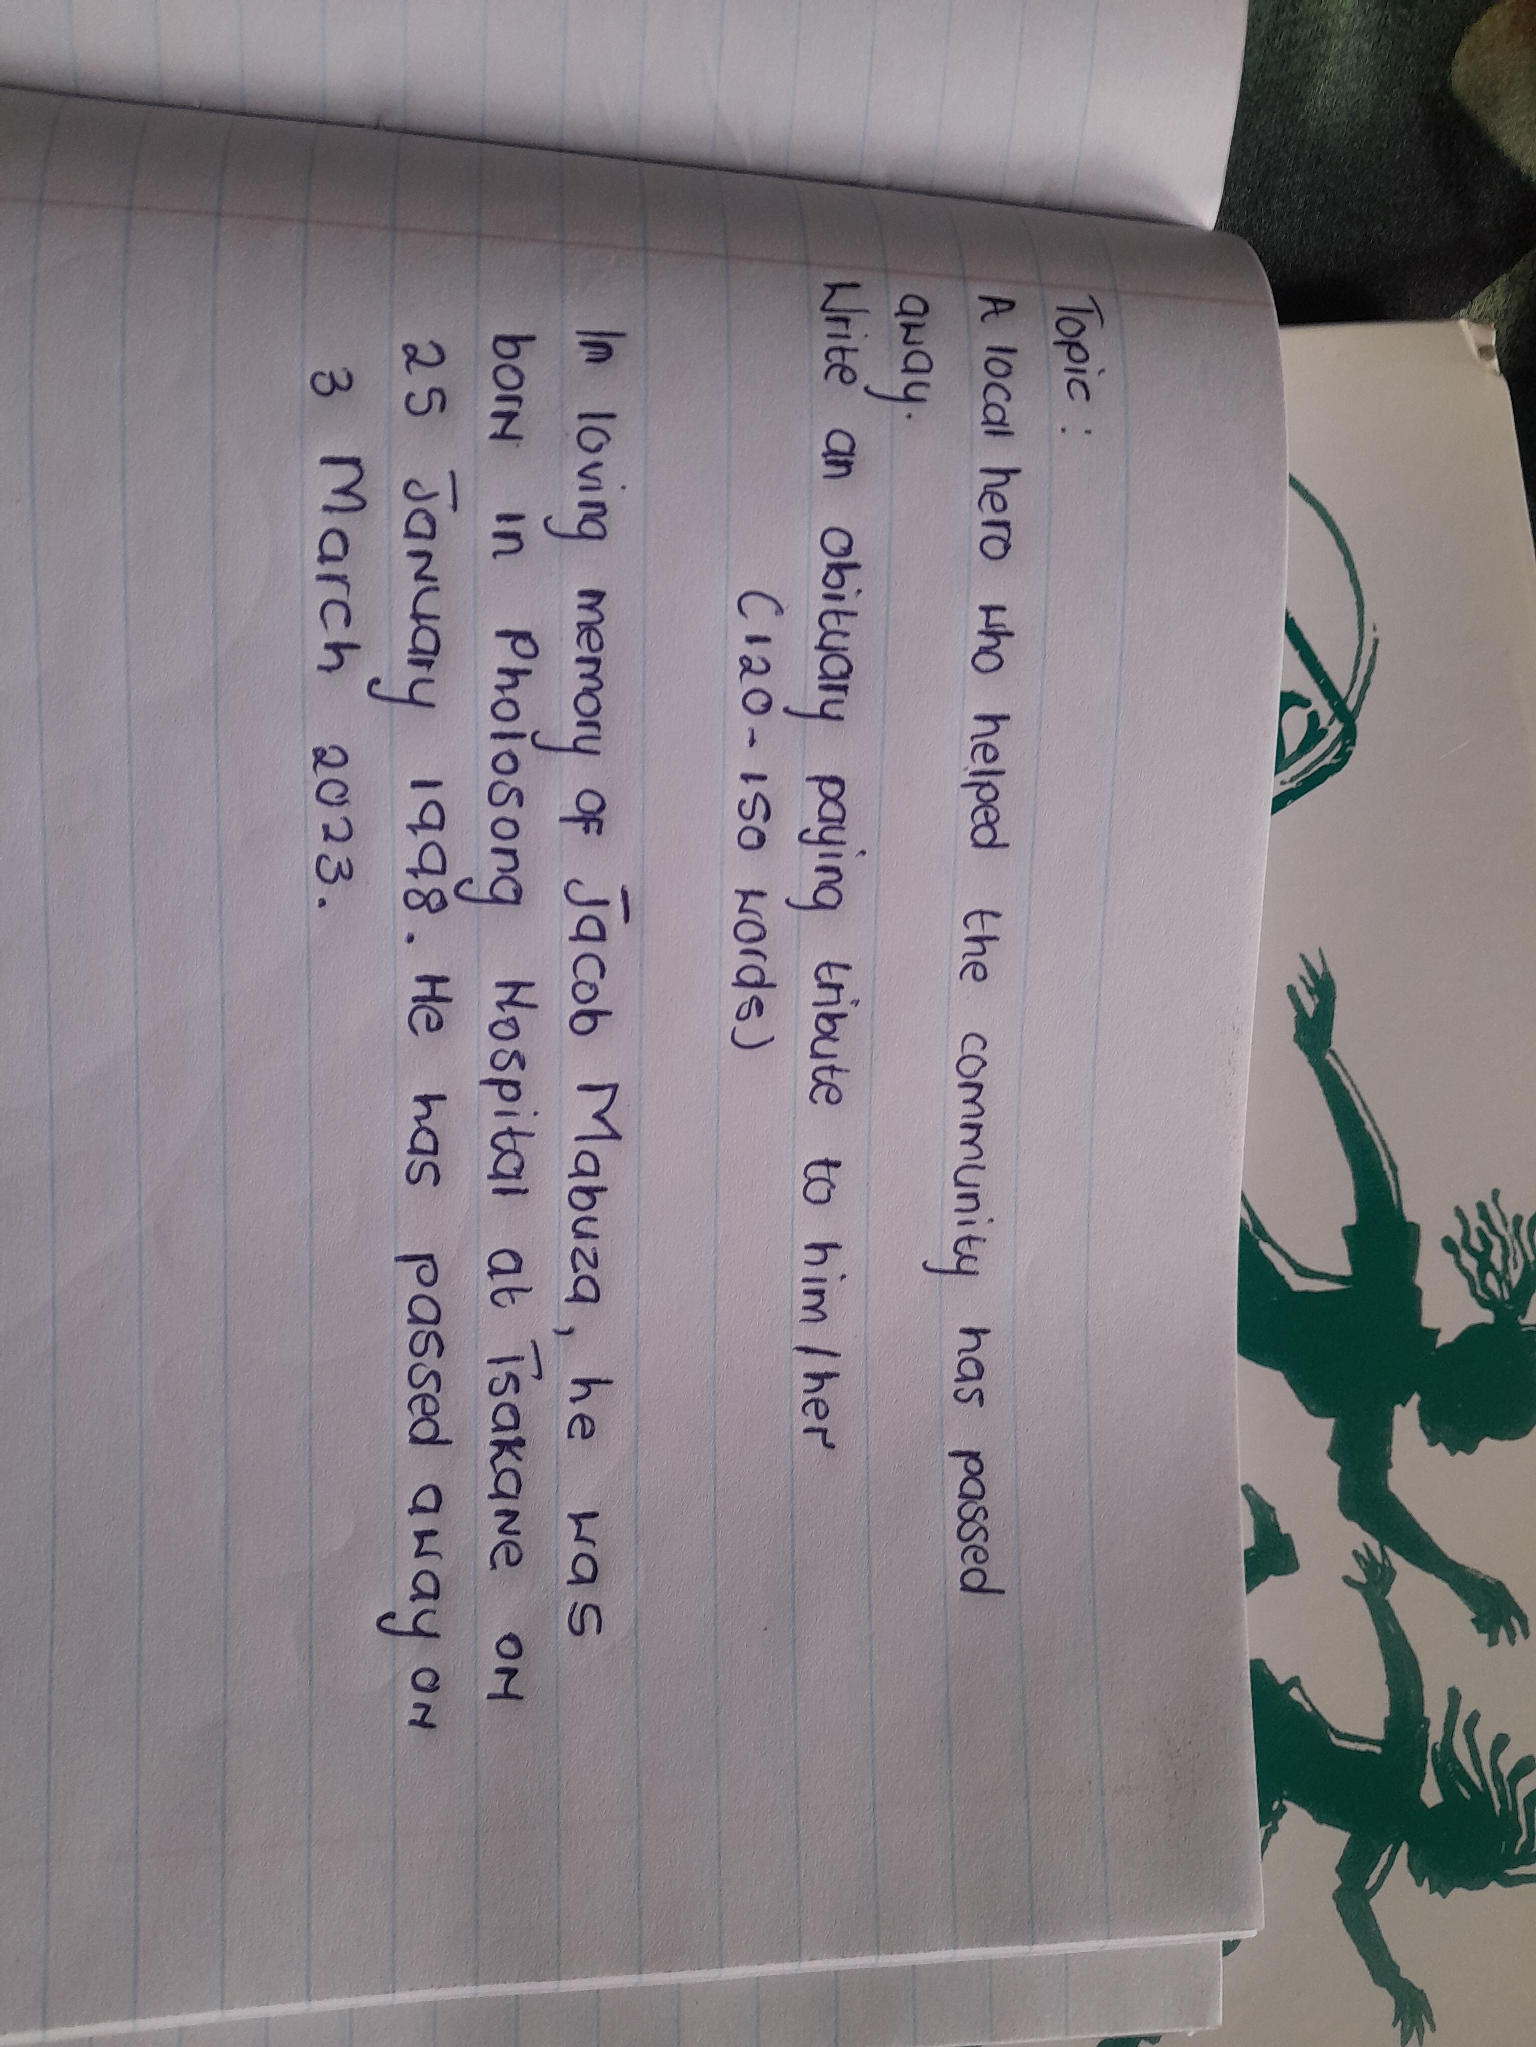 Topic :
A local hero who helped the community has passed
away.
Write an obituary paying tribute to him/her
(120-150 words)
In loving memory of Jacob Mabuza, he was
born in Pholosong Hospital at Tsakane on
25 January 1998. He has passed away on
3 March 2023.